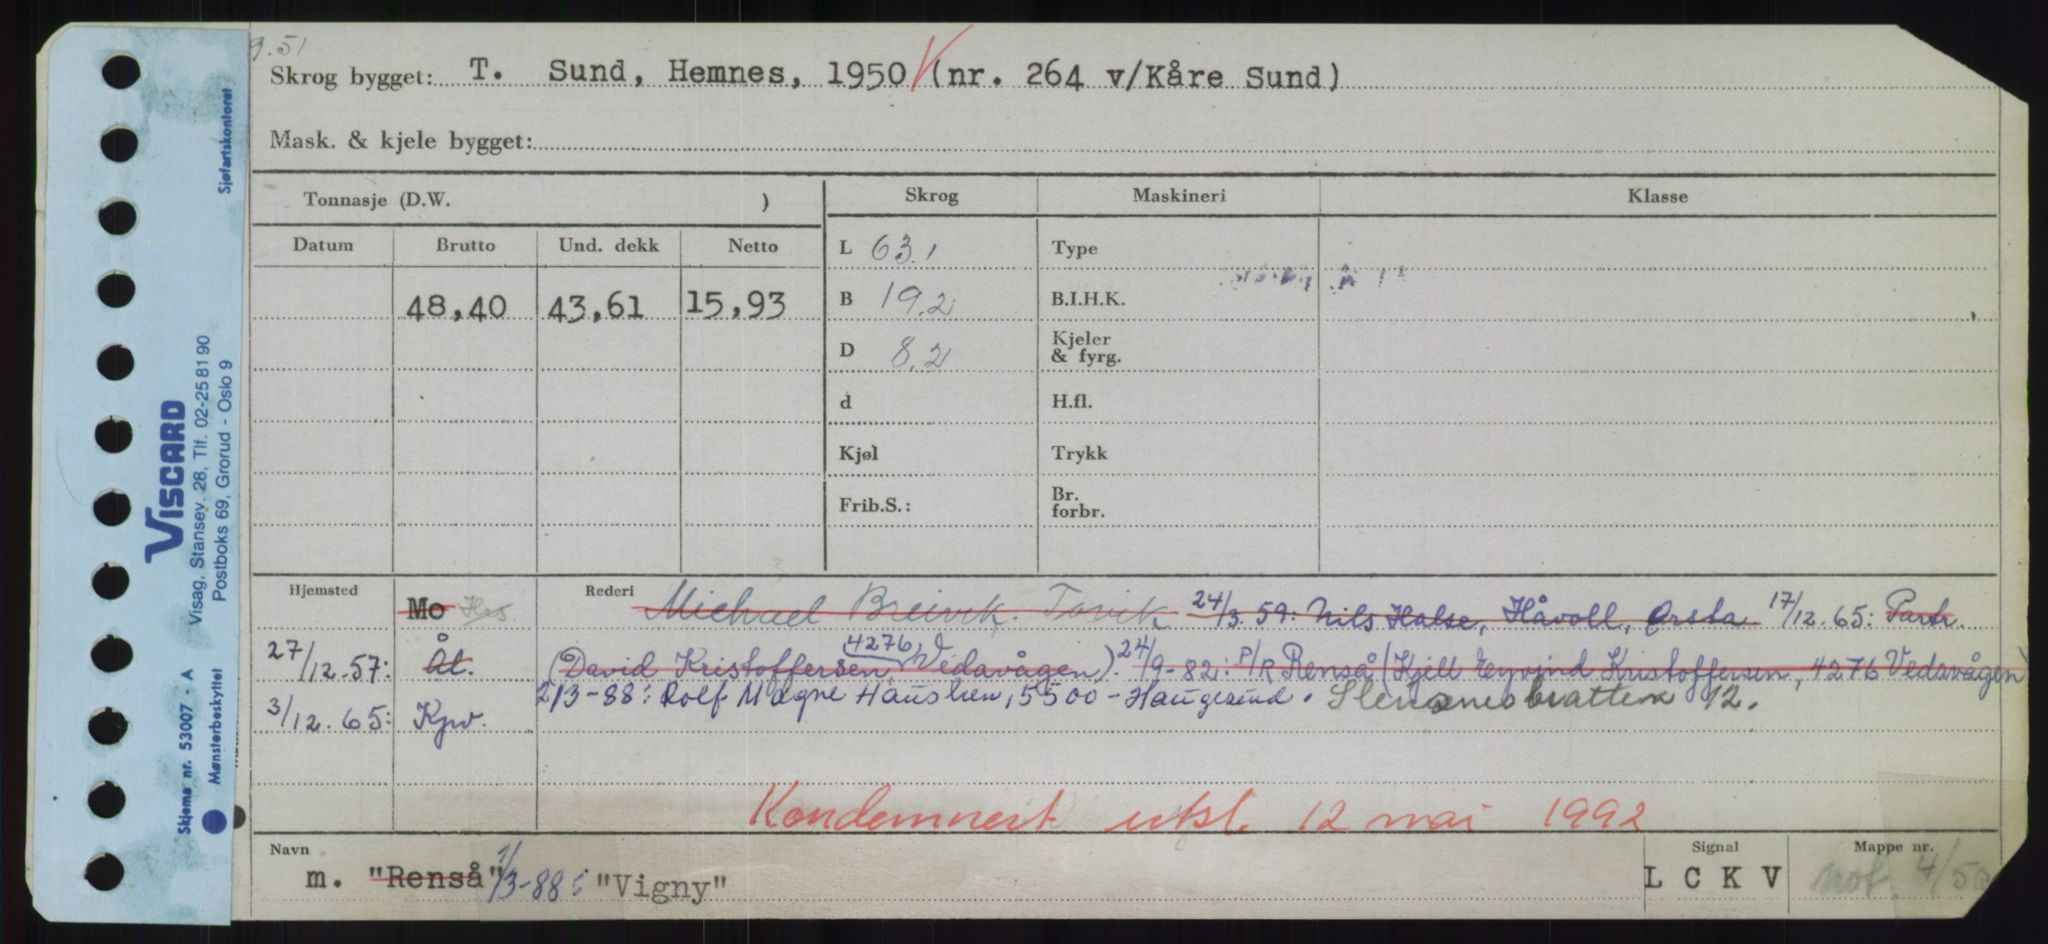 9.51
Skrog bygget: T. Sund, Hemnes, 1950 (nr. 264 v/Kåre Sund)
Mask. & kjele bygget:
Tonnasje (D.W. )
Skrog
Maskineri
Klasse
Datum
Brutto
Und. dekk
Netto
48,40
43,61
15,93
L 63.1
B 19.2
D 8.2
d
Kjøl
Frib.S.:
Type
B.I.H.K.
Kjeler
& fyrg.
H.fl.
Trykk
Br.
forbr.
Hjemsted
Mo
Rederi
Michael Breivik. 24/3.59: Nils Halse, Håvoll, Ørsta 17/12.65: Partr.
27/12.57: Ål. (David Kristoffersen, 4276 Vedavågen). 24/9-82: P/R Renså (Kjell Eyvind Kristoffersen, 4276 Vedavågen)
3/12.65: Kpv. 2/3-88: Rolf Magne 5500-Haugesund. 12.
Kondemnert utsl. 12 mai 1992
Navn
m. "Renså" 1/3-88: "Vigny"
Signal
L C K V
Mappe nr.
not. 4/50
Sjøfartskontoret
VISCARD
Visag, Stansev. 28, Tlf. 02-25 81 90
Postboks 69, Grorud - Oslo 9
Skjema nr. 53007 - A
Mønsterbeskyttet